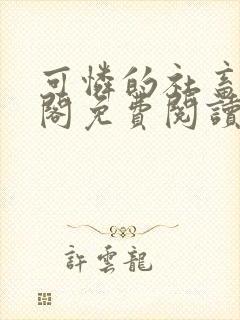 可憐的社畜
閣免費閱讀
許雲龍